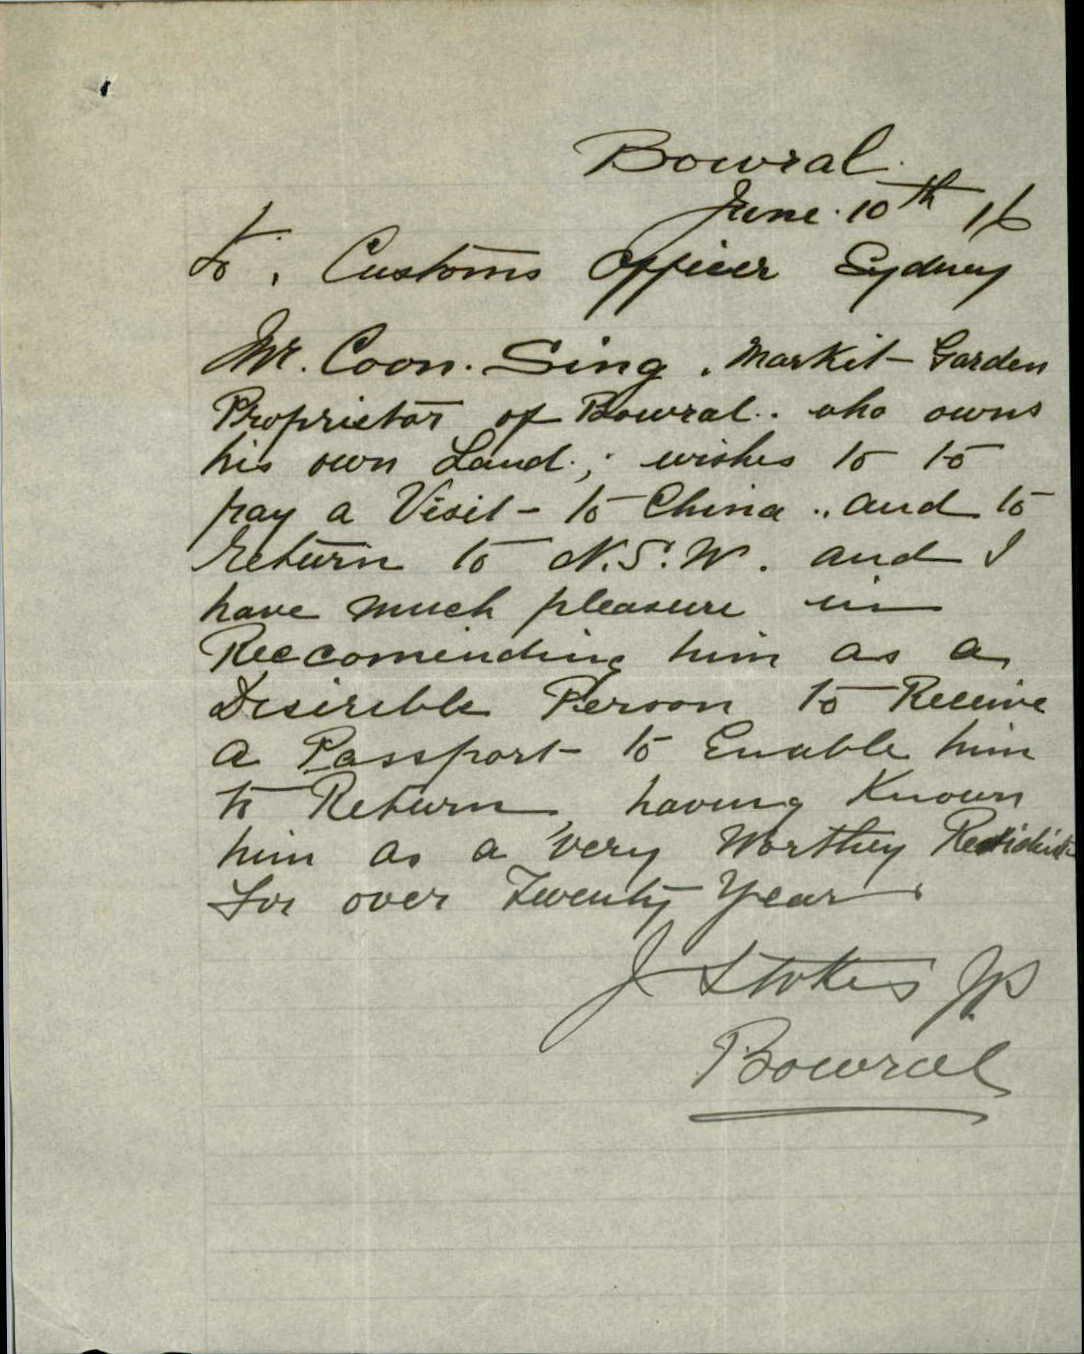 Bowral.
June. 10th 16
To, Customs Officer Sydney
Mr. Coon. Sing. Markit Garden
Proprietor of Bowral.. who owns
his own Land.; wishes to to
pay a Visit - to China.. and to
return to N.S.W. and I
have much pleasure in
Reccomending him as a
Desireble Person to Receive
a Passport to Enable him
to Return, having Known
him as a very Worthey
for over Twenty Year.
J Stokes JP
Bowral